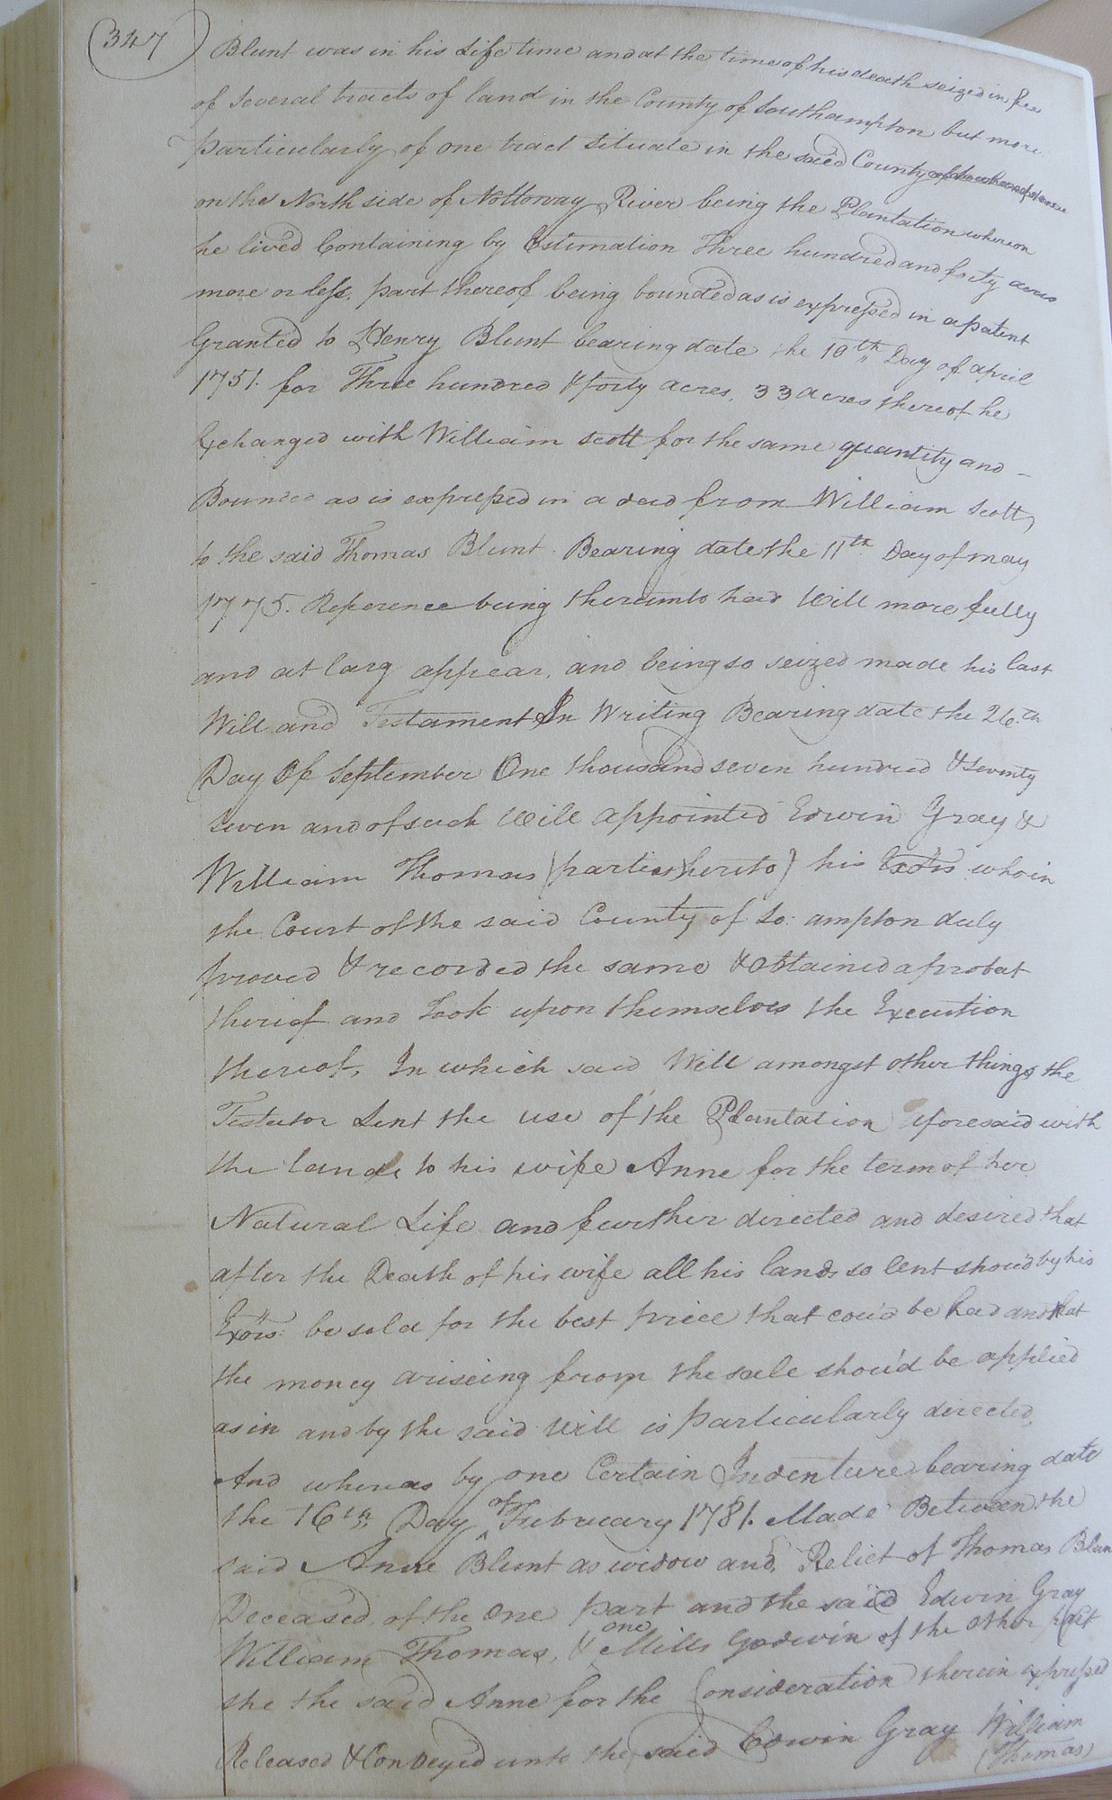 347
Blunt was in his Life time and at the time of his death seized in fee
of Several tracts of land in the County of Southampton but more
particularly of one tract situate in the said County
on the North side of Nottoway River being the Plantation whereon
he lived Containing by Estimation Three hundred and forty acres
more or less, part thereof being bounded as is expressed in a patent
Granted to Henry Blunt bearing date the 10th Day of april
1751. for Three hundred & forty acres, 33 acres thereof he
Exchanged with William Scott for the same quantity and -
Bounded as is expressed in a deed from William Scott,
to the said Thomas Blunt. Bearing date the 11th Day of may
1775. Reference being thereunto had Will more fully
and at larg appear, and being so seized made his last
Will and Testament In Writing Bearing date the 26th
Day Of September One thousand seven hundred & seventy
seven and of such Will appointed Edwin Gray &
William Thomas (parties hereto) his Exors who in
the Court of the said County of So:ampton duly
proved & recorded the same & obtained a probat
thereof and Took upon themselves the Execution
thereof, In which said Will amongst other things the
Testator Lent the use of the Plantation aforesaid with
the lands to his wife Anne for the term of her
Natural Life and further directed and desired that
after the Death of his wife all his lands so lent shou'd by his
Exors: be sold for the best price that cou'd be had and that
the money ariseing from the sale shou'd be applied
as in and by the said Will is particularly directed.
And whereas by one Certain Indenture bearing date
the 16th Day of February 1781. Made Between the
said Anne Blunt as widow and Relict of Thomas Blun
Deceased of the One part and the said Edwin Gray
William Thomas, & one Mills Godwin of the other part
she the said Anne for the Consideration therein expressed
Released & Conveyed unto the said Edwin Gray William
(Thomas)